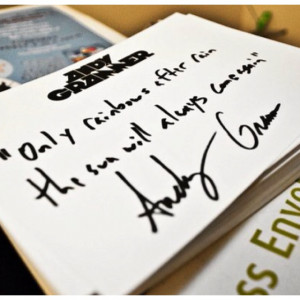 ANDY
GRAMMER
"Only rainbows after rain
the sun will always come again"
Andy Gram
ss Enve